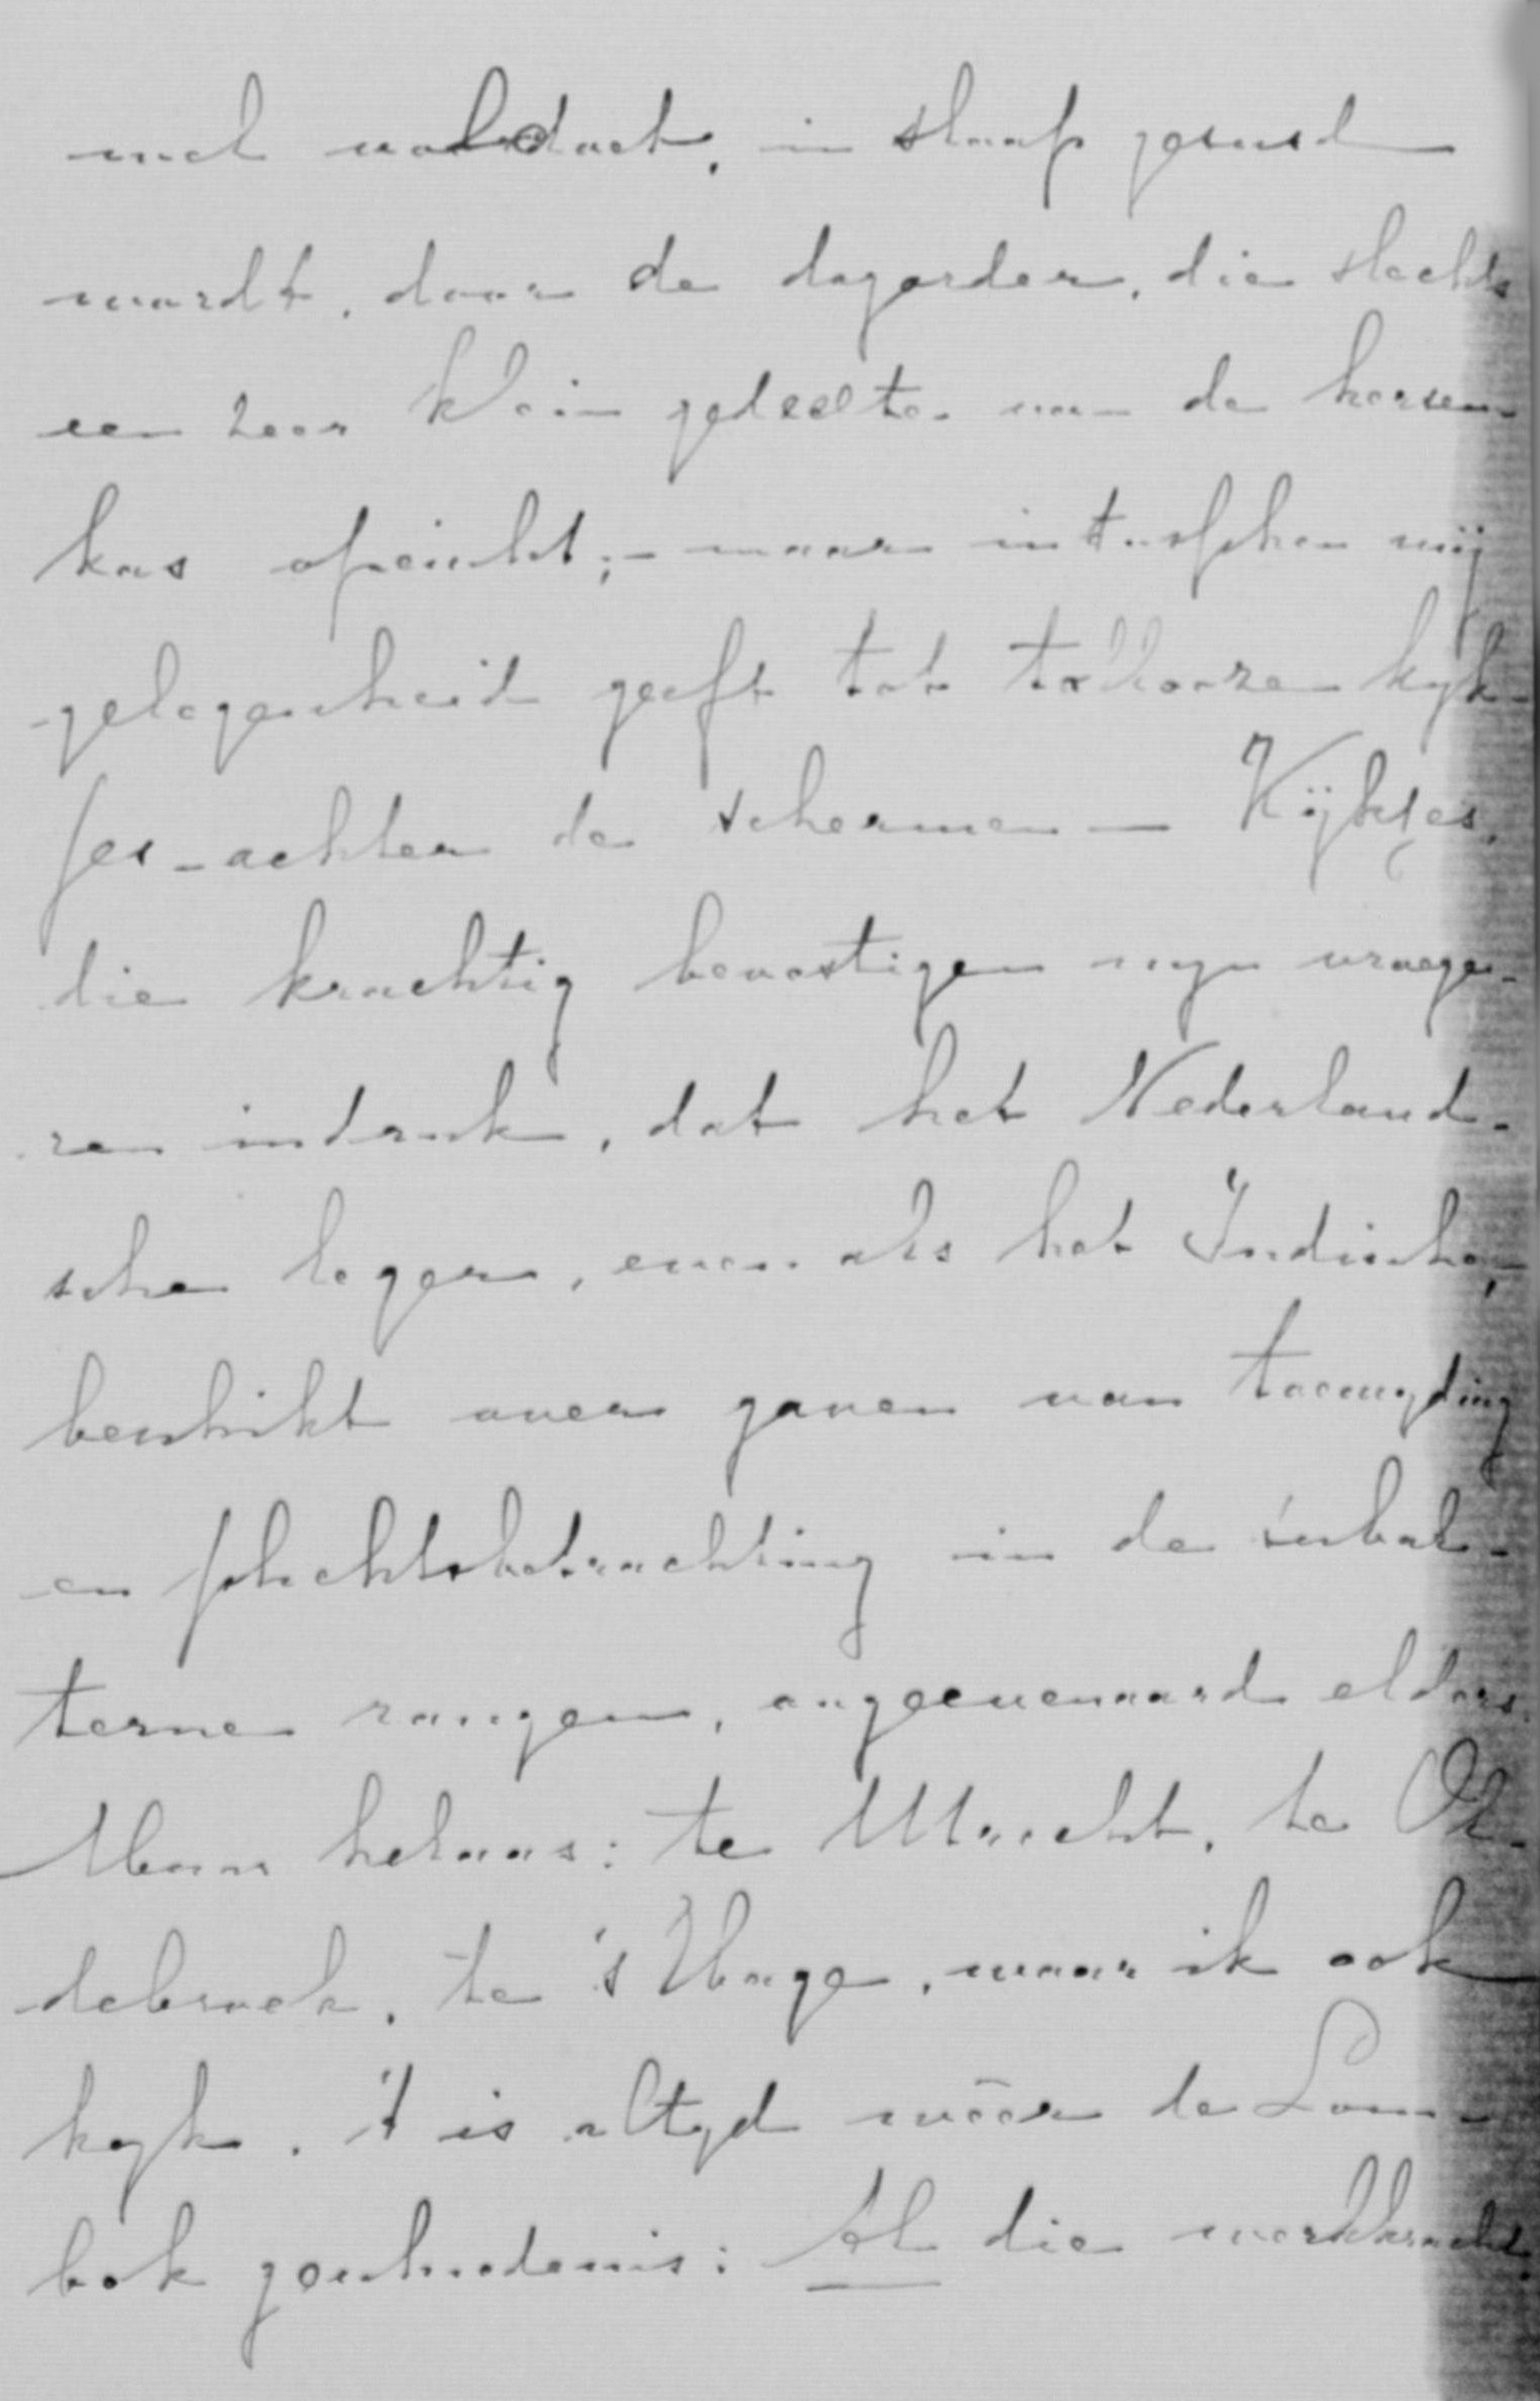 met voldoet, in slaap gesust
wordt, door de dagorder, die slechts
een zeer klein gedeelte van de hersen-
kas opeischt; - maar intusschen mij
gelegenheid geeft tot tallooze kijk-
jes - achter de schermen — Kijkjes,
die krachtig bevestigen mijn vroege-
ren indruk, dat het Nederland-
sche leger, even als het Indische,
beschikt over gaven van toewijding
en plichtsbetrachting in de subal-
terne rangen, ongeëvenaard elders.
Maar helaas: te Utrecht, te Ol-
debroek, te 's Hage, waar ik ook
kijk. 't is altijd wéér de Lom-
bok geschiedenis: Al die werkkracht,